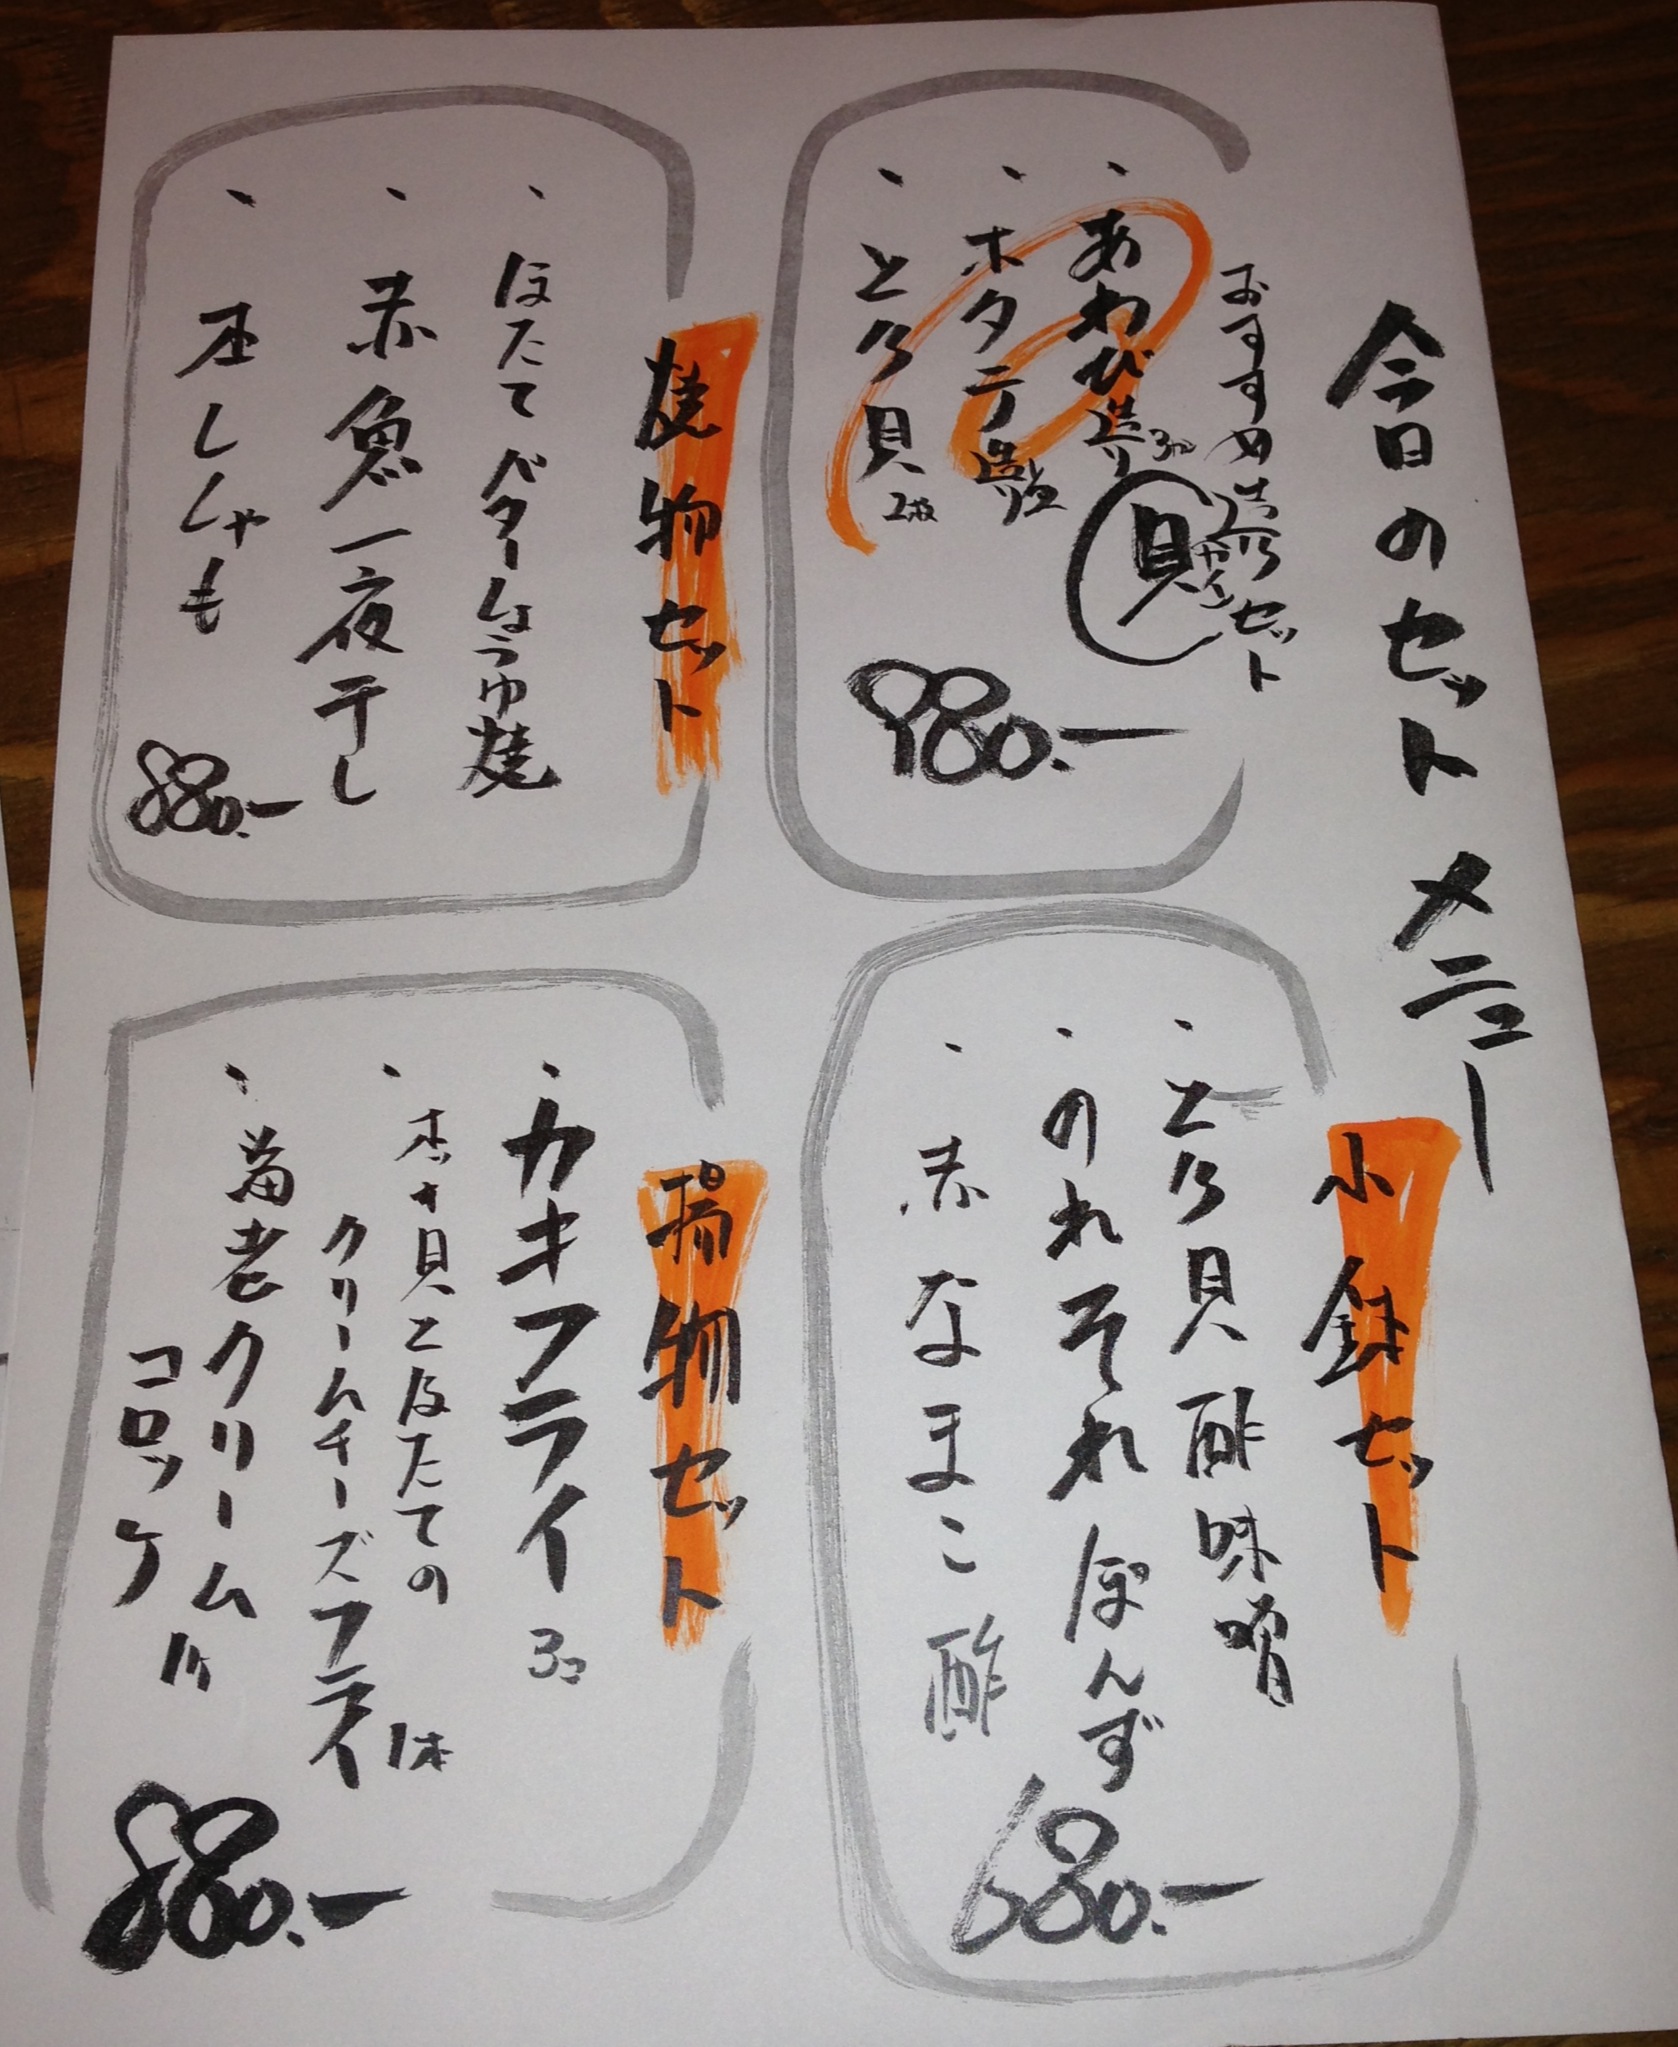 今日のセットメニュー
おすすめ造りセット
貝
・あわび造り
・ホタテ造り
・とり貝 2枚
980.-
小鉢セット
・とり貝酢味噌
・のれそれぽんず
・赤なまこ酢
680.-
焼物セット
・ほたてバターしょうゆ焼
・赤魚一夜干し
・本ししゃも
880.-
揚物セット
・カキフライ 3コ
・ホッキ貝とほたての
クリームチーズフライ 1本
・海老クリーム
コロッケ 1ケ
880.-